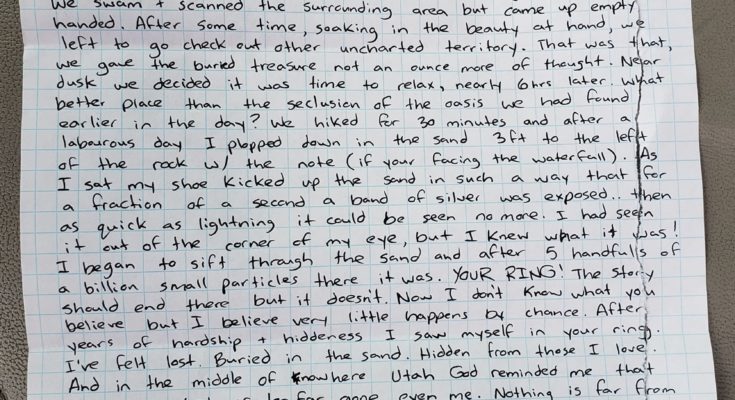 We swam + scanned the surrounding area but came up empty
handed. After some time, soaking in the beauty at hand, we
left to go check out other uncharted territory. That was that,
we gave the buried treasure not an ounce more of thought. Near
dusk we decided it was time to relax, nearly 6hrs later. What
better place than the seclusion of the oasis we had found
earlier in the day? We hiked for 30 minutes and after a
labourous day I plopped down in the sand 3ft to the left
of the rock w/ the note (if your facing the waterfall). As
I sat my shoe kicked up the sand in such a way that for
a fraction of a second a band of silver was exposed.. then
as quick as lightning it could be seen no more. I had seen
it out of the corner of my eye, but I knew what it was!
I began to sift through the sand and after 5 handfulls of
a billion small particles there it was. YOUR RING! The story
should end there but it doesn't. Now I don't know what you
believe but I believe very little happens by chance. After
years of hardship + hiddeness I saw myself in your ring.
I've felt lost. Buried in the sand. Hidden from those I love.
And in the middle of knowhere Utah God reminded me that
far gone even me. Nothing is far from